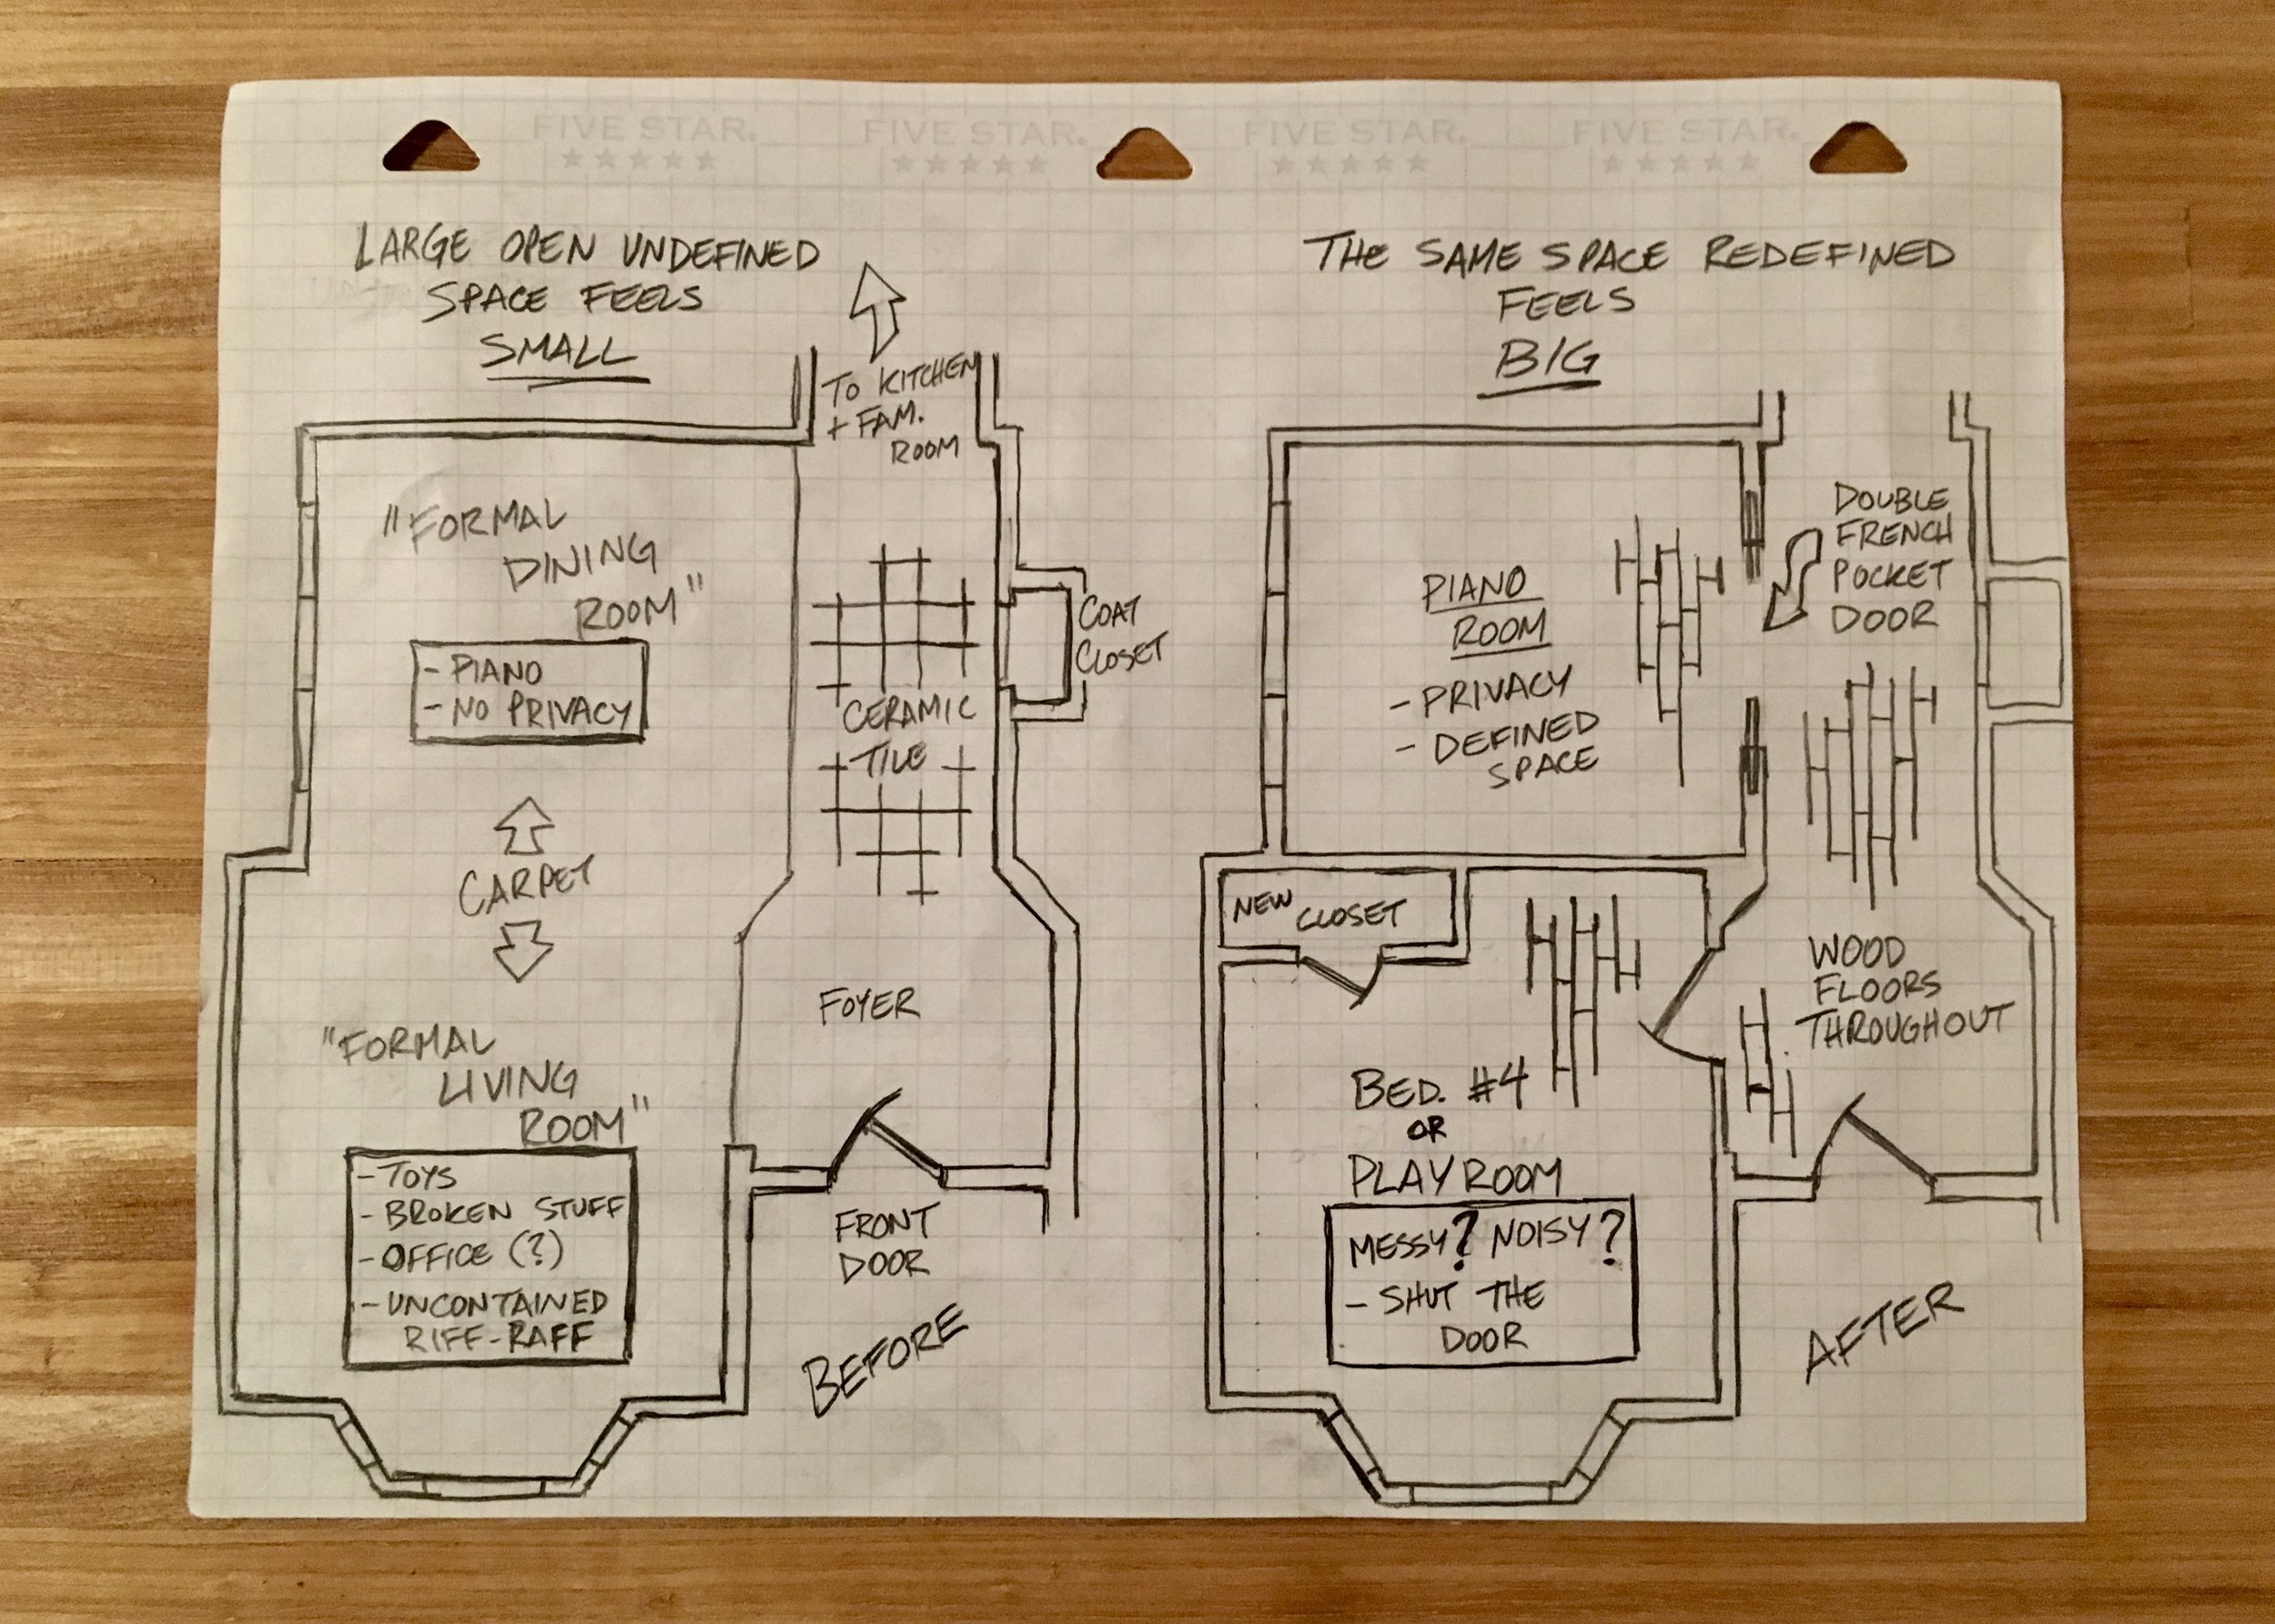 FIVE STAR.
FIVE STAR.
FIVE STAR.
FIVE STAR.
LARGE OPEN UNDEFINED
SPACE FEELS
SMALL
TO KITCHEN
+ FAM.
ROOM
"FORMAL
DINING
ROOM"
- PIANO
- NO PRIVACY
COAT
CLOSET
CERAMIC
TILE
CARPET
FOYER
"FORMAL
LIVING
ROOM"
- TOYS
- BROKEN STUFF
- OFFICE (?)
- UNCONTAINED
RIFF-RAFF
FRONT
DOOR
BEFORE
THE SAME SPACE REDEFINED
FEELS
BIG
DOUBLE
FRENCH
POCKET
DOOR
PIANO
ROOM
- PRIVACY
- DEFINED
SPACE
NEW CLOSET
WOOD
FLOORS
THROUGHOUT
BED. #4
OR
PLAYROOM
MESSY? NOISY?
- SHUT THE
DOOR
AFTER